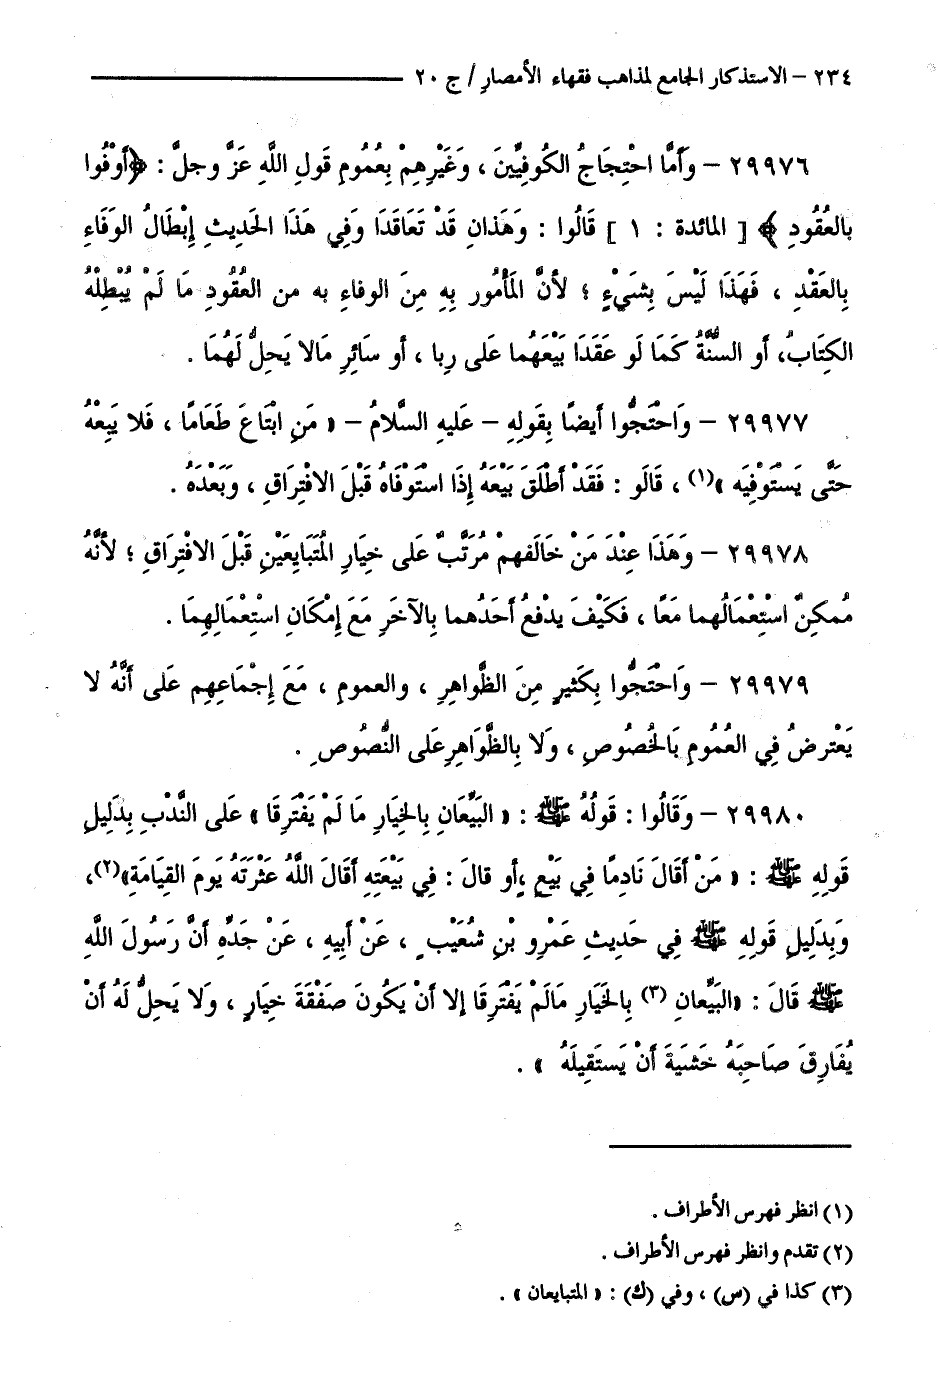 ٢٣٤ – الاستذكار الجامع لمذاهب فقهاء الأمصار / ج ٢٠
٢٩٩٧٦ – وَأَمَّا احْتِجَاجُ الكُوفِيِّينَ ، وَغَيْرِهِمْ بِعُمُومِ قَولِ اللَّهِ عَزَّ وجلَّ : ﴿أَوْفُوا
بالعُقُودِ ﴾ [ المائدة : ١ ] قَالُوا : وَهَذَانِ قَدْ تَعَاقَدَا وَفِي هَذَا الحَديثِ إِبْطَالُ الوَفَاءِ
بِالعَقْدِ ، فَهَذَا لَيْسَ بِشَيْءٍ ؛ لأنَّ المَأْمُور بِهِ مِنَ الوفاءِ به من العُقُودِ مَا لَمْ يُبْطِلْهُ
الكِتَابُ، أو السُّنَّةُ كَمَا لَو عَقَدَا بَيْعَهُما عَلى رِبا ، أو سَائِرِ مَالا يَحِلُّ لَهُمَا .
٢٩٩٧٧ – وَاحْتَجُّوا أيضًا بِقَولِهِ – عليهِ السَّلامُ – « مَنِ ابْتَاعَ طَعَامًا ، فَلا يَبِعْهُ
حَتَّى يَسْتَوْفِيَه »(١) ، قَالَو : فَقَدْ أَطْلَقَ بَيْعَهُ إِذَا اسْتَوْفَاهُ قَبْلَ الافْتِرَاقِ ، وَبَعْدَهُ .
٢٩٩٧٨ – وَهَذَا عِنْدَ مَنْ خَالَفهمْ مُرَتَّبٌ عَلى خيَارِ المُتَبَايِعَيْنِ قَبْلَ الافْتِرَاقِ ؛ لأنَّهُ
مُمكِنٌ اسْتِعْمَالُهما مَعًا ، فَكَيْفَ يدْفعُ أَحَدُهما بِالآخَرِ مَعَ إِمْكَانِ اسْتِعْمَالِهِمَا .
٢٩٩٧٩ – وَاحْتَجُّوا بِكَثيرٍ مِنَ الظَّواهِرِ ، والعمومِ ، مَعَ إِجْمَاعِهِم عَلى أَنَّهُ لا
يَعْترضُ فِي العُمُومِ بَالخُصُوصِ ، وَلا بِالظَّوَاهِرِعَلى النُّصُوصِ .
٢٩٩٨٠ – وَقَالُوا : قَولُهُ ﷺ : « البَيِّعَانِ بِالخِيَارِ مَا لَمْ يَفْتَرِقَا » عَلى النَّدْبِ بِدَلِيلِ
قَولِهِ ﷺ : « مَنْ أَقَالَ نَادِمًا فِي بَيْعٍ ،أو قالَ : فِي بَيْعَتِهِ أَقَالَ اللَّهُ عَثْرَتَهُ يَومَ القِيَامَةِ»(٢)،
وَبِدَلِيلِ قَولِهِ ﷺ فِي حَدِيثِ عَمْرِو بْنِ شُعَيْبٍ ، عَنْ أَبِيهِ ، عَنْ جَدِّهِ أَنَّ رَسُولَ اللَّهِ
ﷺ قَالَ : «البَيِّعان (٣) بِالخَيَارِ مَالَمْ يَفْتَرِقَا إلا أَنْ يَكُونَ صَفْقَةَ خيَارٍ ، وَلا يَحِلُّ لَهُ أَنْ
يُفَارِقَ صَاحِبَهُ خَشَيَةَ أَنْ يَستَقِيلَهُ » .
(١) انظر فهرس الأطراف .
(٢) تقدم وانظر فهرس الأطراف .
(٣) كذا في (س) ، وفي (ك) : « المتبايعان » .